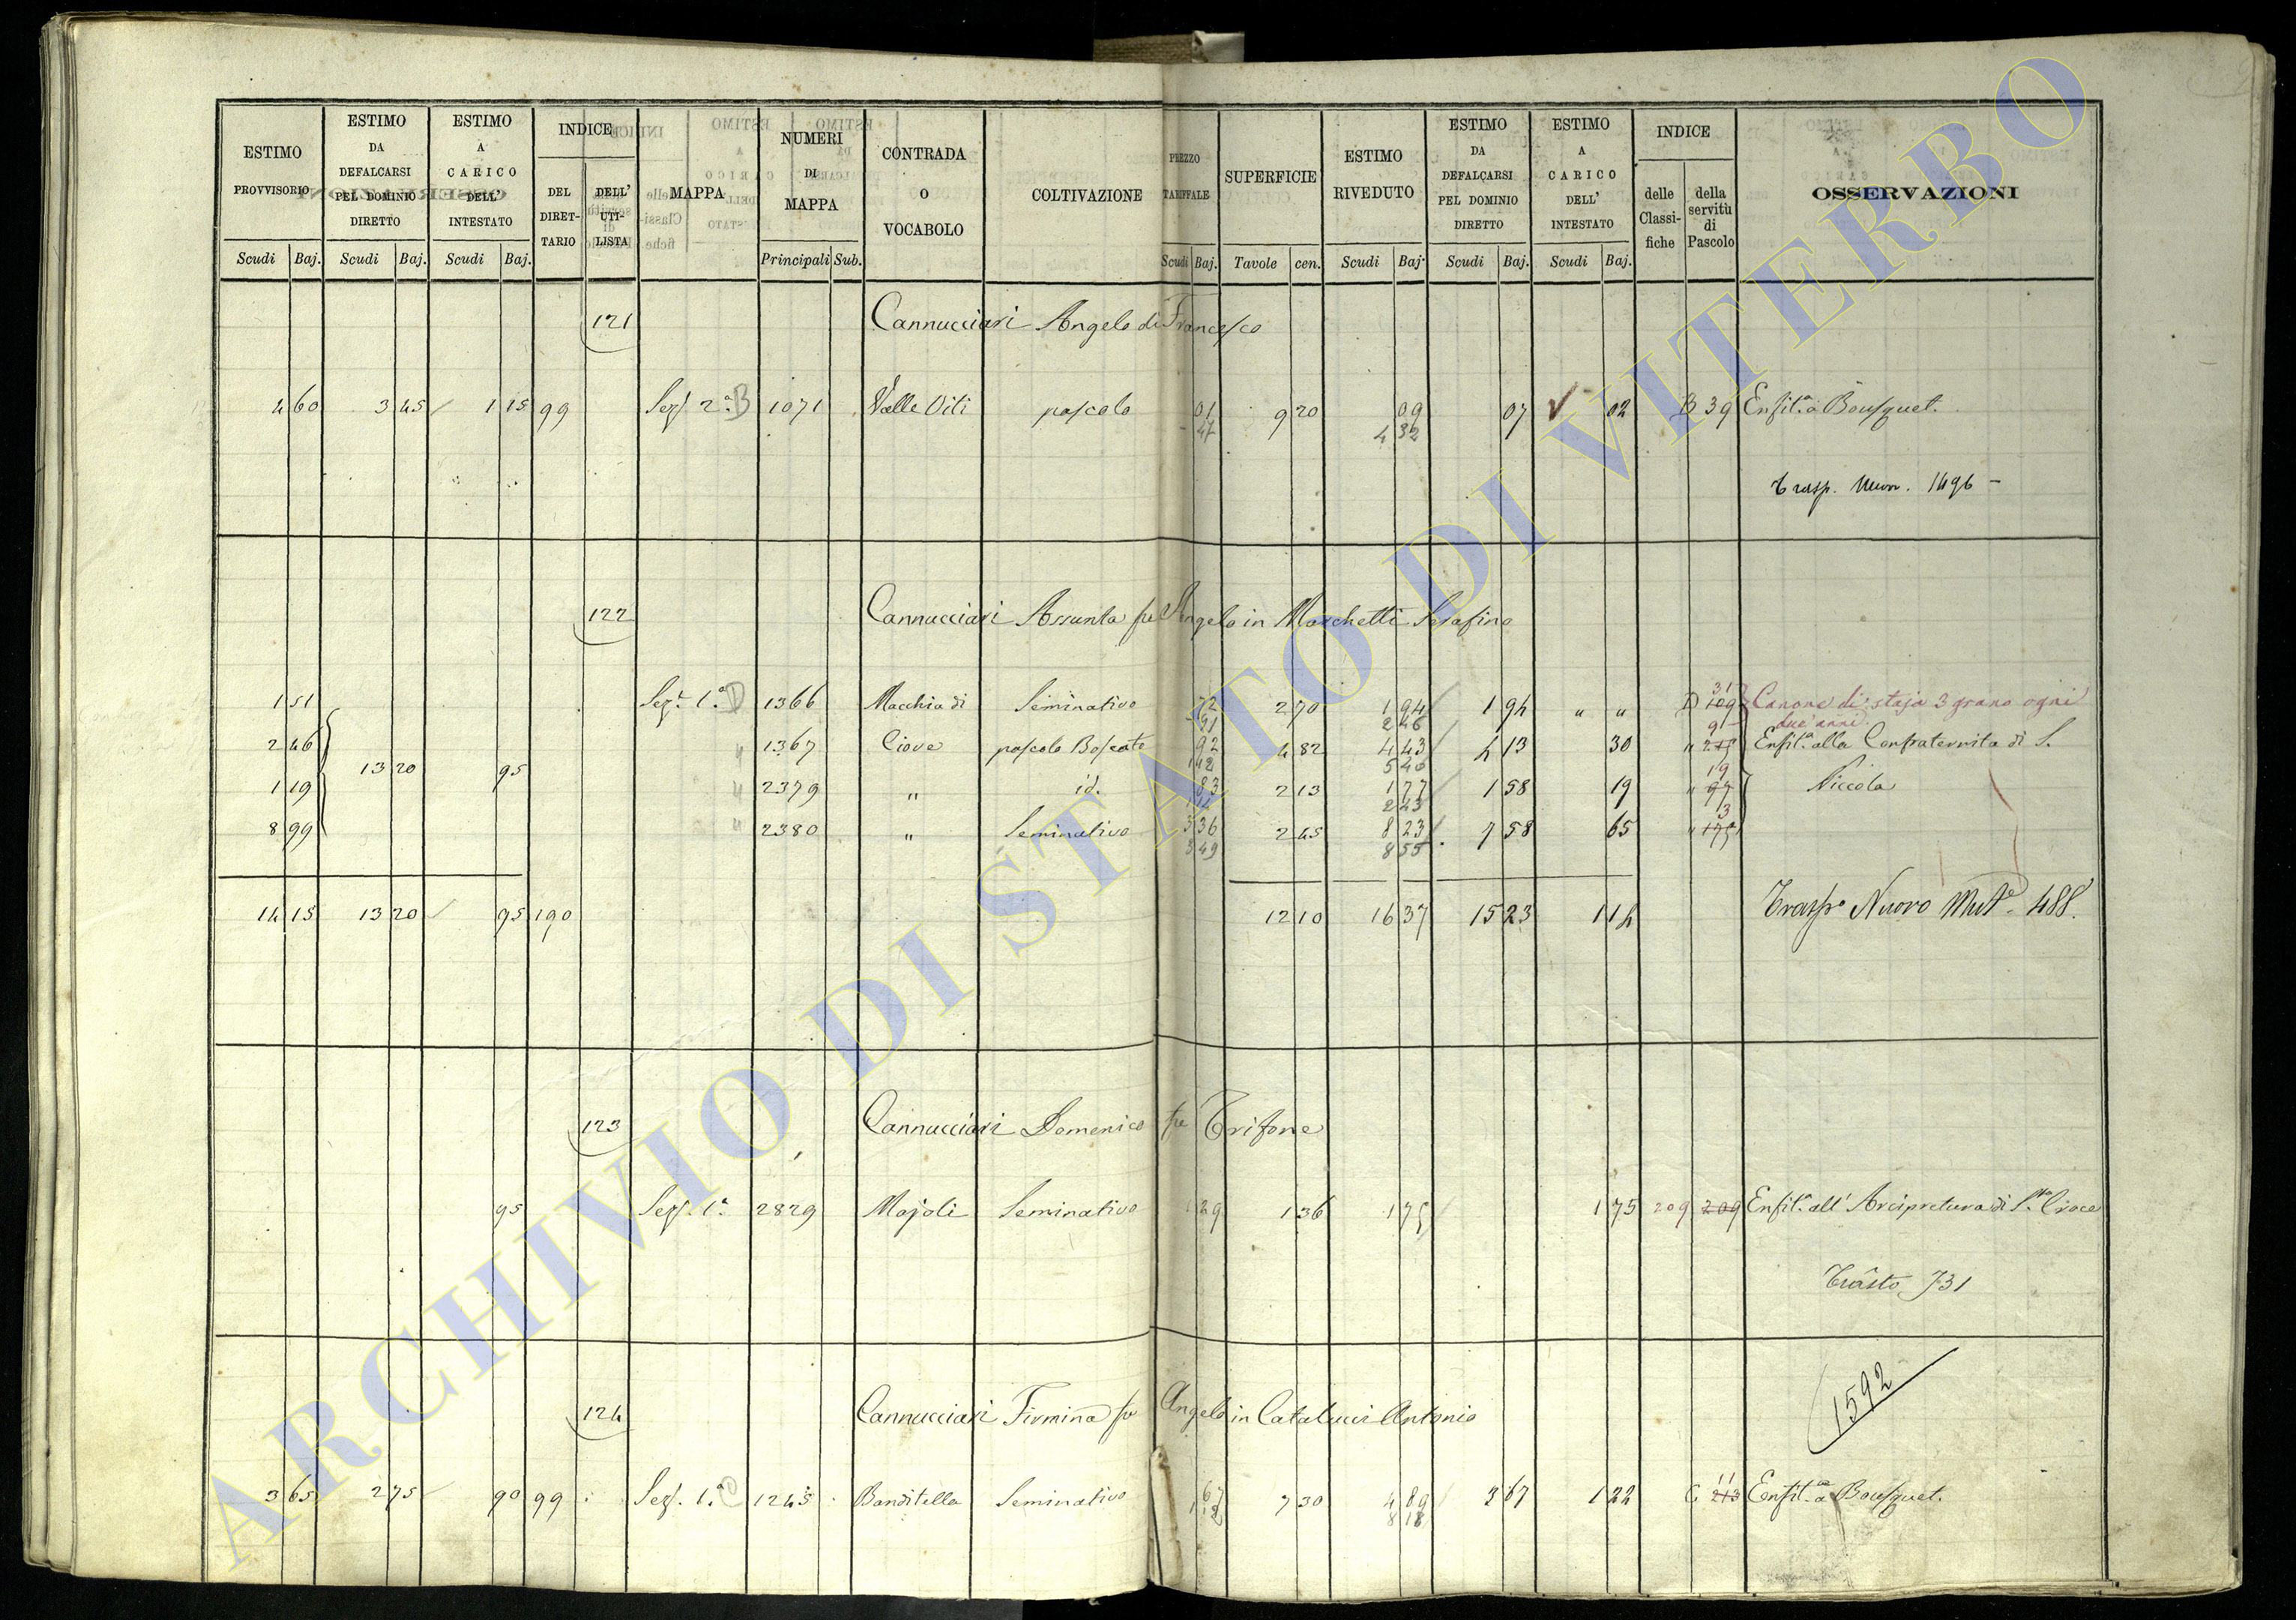 ESTIMO PROVVISORIO Scudi Baj.
ESTIMO DA DEFALCARSI PEL DOMINIO DIRETTO Scudi Baj.
ESTIMO A CARICO DELL' INTESTATO Scudi Baj.
INDICE DEL DIRETTARIO DELL' UTILISTA
MAPPA
NUMERI DI MAPPA Principali Sub.
CONTRADA O VOCABOLO
COLTIVAZIONE
PREZZO TARIFFALE Scudi Baj.
SUPERFICIE Tavole cen.
ESTIMO RIVEDUTO Scudi Baj.
ESTIMO DA DEFALCARSI PEL DOMINIO DIRETTO Scudi Baj.
ESTIMO A CARICO DELL' INTESTATO Scudi Baj.
INDICE delle Classifiche della servitù di Pascolo
OSSERVAZIONI
121 Cannucciari Angelo di Francesco
4 60 3 45 1 15 99 Sez. 2ª B 1071 Valle Viti pascolo 01 9 20 09 07 02 B 39 Enfit.ª a Bousquet.
47 4 32
Trasp. Nuov. 1496 -
122 Cannucciari Assunta fu Angelo in Marchetti Serafino
1 51 Sez. 1ª D 1366 Macchia di Seminativo 72 2 70 1 94 1 94 " " D 109 31 Canone di staja 3 grano ogni
91 2 46 due anni
2 46 " 1367 Ciove pascolo Boscato 92 4 82 4 43 4 13 30 " 215 91 Enfit.ª alla Confraternita di S.
1 12 5 40
13 20 95
1 19 " 2379 " id. 83 2 13 1 77 1 58 19 " 97 19 Niccola
1 11 2 23
8 99 " 2380 " Seminativo 3 36 2 45 8 23 7 58 65 " 175 3
3 49 8 55
14 15 13 20 95 190 12 10 16 37 15 23 1 14 Trasp.º Nuovo Mut.e 488.
123 Cannucciari Domenico fu Trifone
95 Sez. 1ª 2829 Majoli Seminativo 1 29 1 36 1 75 1 75 209 209 Enfit.ª all' Arcipretura di S.ta Croce
Trasto 731
1592
124 Cannucciari Firmina fu Angelo in Catalucci Antonio
3 65 2 75 90 99 Sez. 1ª C 1245 Banditella Seminativo 67 7 30 4 89 3 67 1 22 C 213 11 Enfit.ª a Bousquet.
1 12 8 18
ARCHIVIO DI STATO DI VITERBO